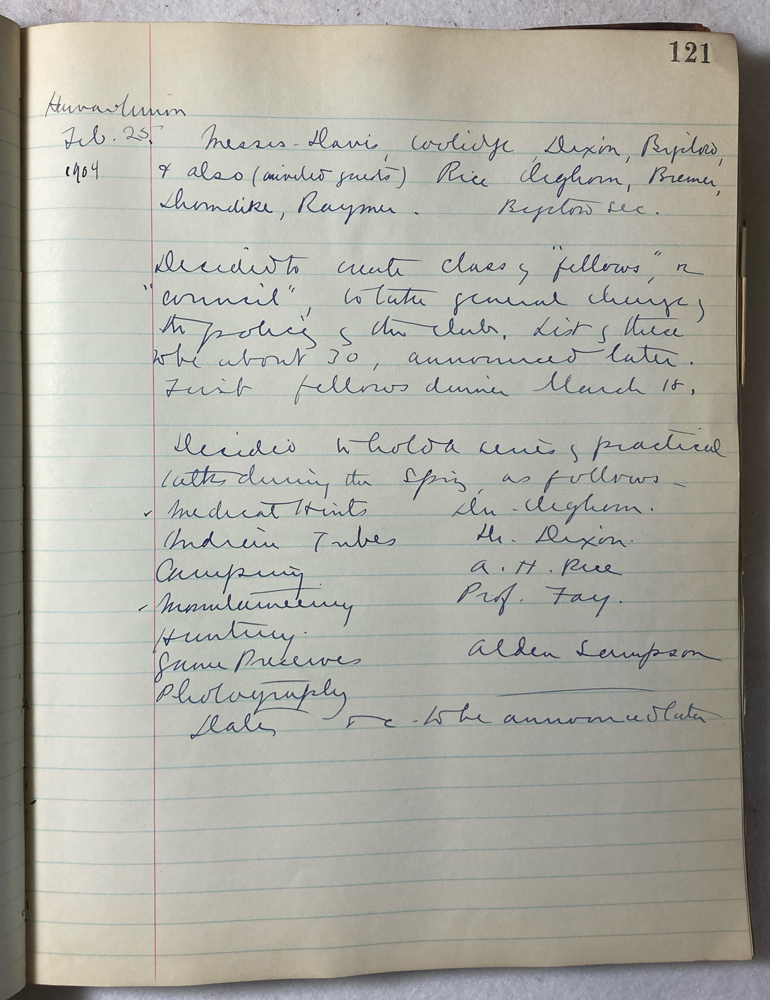 121
Harvard Union
Feb. 25. Messrs - Davis, Coolidge, Dixon, Bigelow,
1904 & also (invited guests) Rice Cleghorn, Bremer,
Thorndike, Raymer. Bigelow Sec.
Decided to create class of "fellows", or
"council", to take general charge of
the policy of the club. List of these
to be about 30, announced later.
First fellows dinner March 18.
Decided to hold a series of practical
talks during the Spring, as follows -
✓ Medical Hints Dr. Cleghorn.
Indian Tribes Dr. Dixon.
Camping A. H. Rice
✓ Mountaineering Prof. Fay.
Hunting.
Game Preserves Alden Sampson
Photography
Dates &c - to be announced later